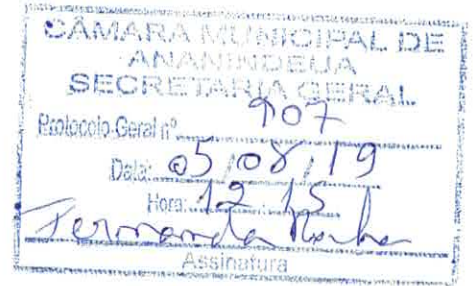 CÂMARA MUNICIPAL DE
ANANINDEUA
SECRETARIA GERAL
Protocolo Geral nº 907
Data: 05/08/19
Hora: 12:15
Fernanda
Assinatura